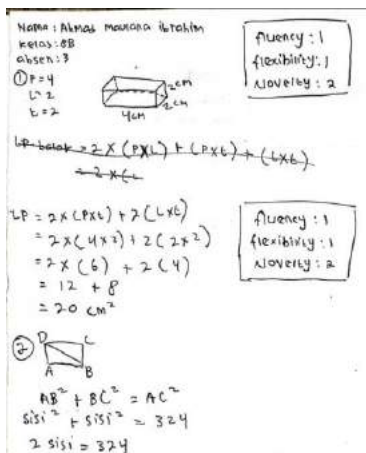 Nama : Akmas maulana ibrahim
kelas : 8B
absen : 3
fluency : 1
flexibility : 1
Novelty : 2
① P = 4
L = 2
t = 2
2 cm
2 cm
4 cm
LP balok = 2 x (PXL) + (PXt) + (Lxt)
= 2 x (L
LP = 2x (Pxt) + 2 (Lxt)
= 2x (4x2) + 2 (2x2)
= 2 x (6) + 2 (4)
= 12 + 8
= 20 cm²
fluency : 1
flexibility : 1
Novelty : 2
②
D C
A B
AB² + BC² = AC²
sisi² + sisi² = 324
2 sisi = 324